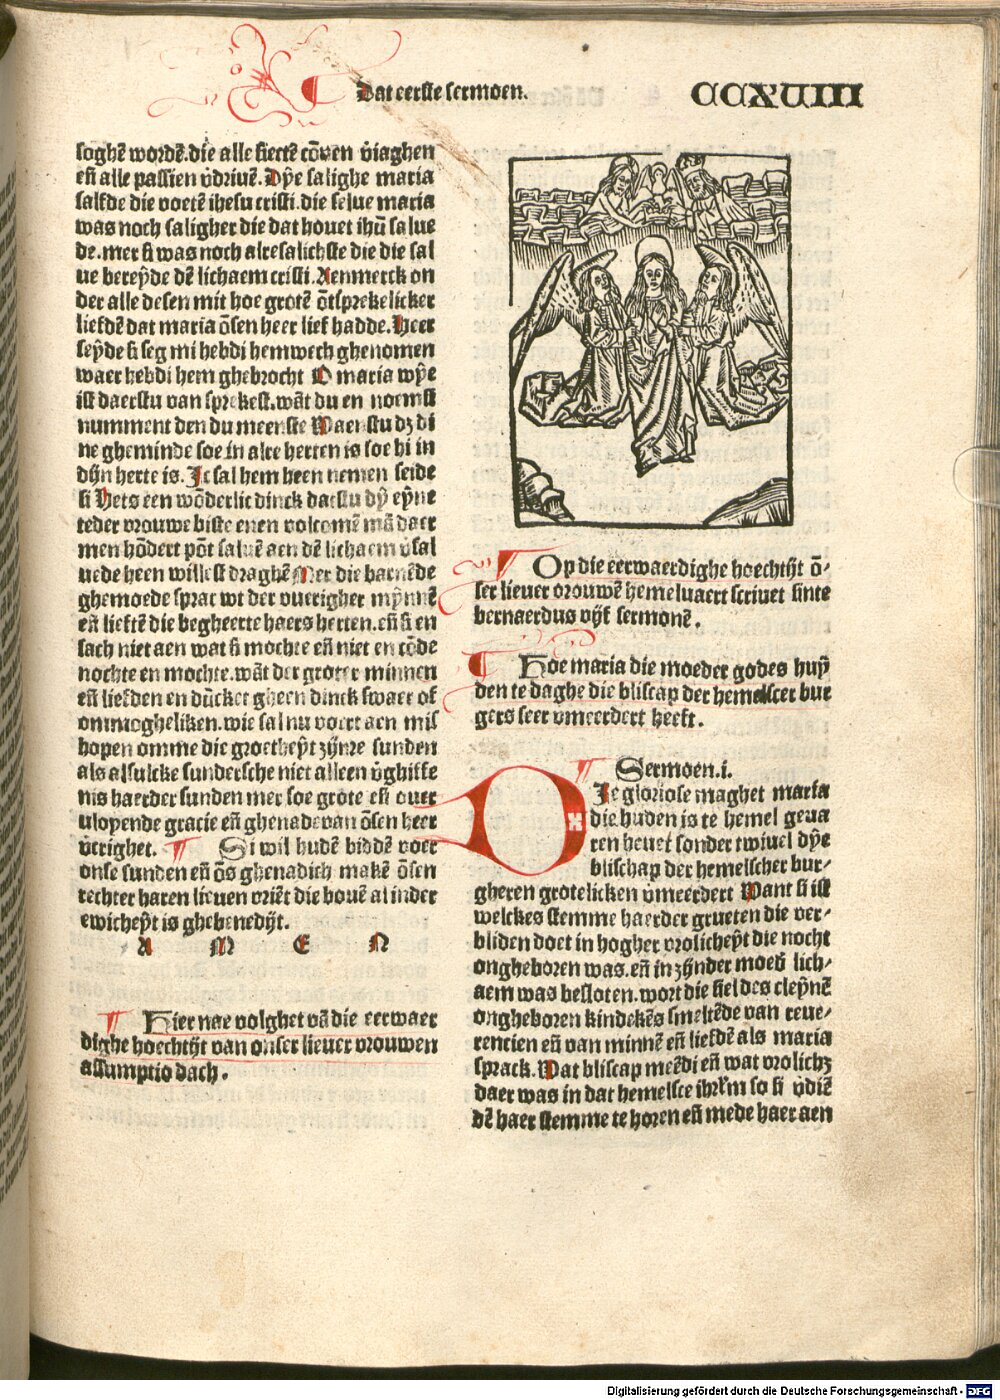 Dat eerste sermoen. CCXVIII
soghē wordē. die alle siectē cōnen v̄iaghen
eñ alle passien v̄drivē. Dÿe salighe maria
salfde die voetē ihesu cristi. die selue maria
was noch saligher die dat houet ihū salue
de. mer si was noch alresalichste die die sal
ue bereyde dē lichaem cristi. Aenmerck on
der alle desen mit hoe grotē ōtsprekelicker
liefdē dat maria ōsen heer lief hadde. Heer
seyde si seg mi hebdi hem wech ghenomen
waer hebdi hem ghebrocht O maria wÿe
ist daerstu van sprekest. wāt du en noemst
nummant den du meenste Waenstu dz di
ne gheminde soe in alre herten is soe hi in
dÿn herte is. Ic sal hem heen nemen seide
si Hets een wōderlic dinck datstu dÿ eyne
teder vrouwe biste enen volcomē mā daer
men hōdert pōt saluē aen dē lichaem v̄sal
uede heen willest draghē Mer die barnēde
ghemoede sprac wt der vueriigher mynnē
eñ lieftē die begheerte haers herten. eñ si en
sach niet aen wat si mochte eñ niet en cōde
nochte en mochte. wāt der groter minnen
eñ liefden en dūcket gheen dinck swaer of
onmogheliken. wie sal nu voert aen mis
hopen omme die groetheyt zÿnre sunden
als alsulcke sundersche niet alleen v̄ghiffe
nis haerder sunden mer soe grote eñ ouer
vlopende gracie eñ ghenade van ōsen heer
v̄crighet. Si wil hudē biddē voer
onse sunden eñ ōs ghenadich makē ōsen
rechter haren lieuen vriēt die bouē al inder
ewicheyt is ghebenedÿt.
A M E N
Hier nae volghet vā die eerwaer
dighe hoechtÿt van onser lieuer vrouwen
assumptio dach.
Op die eerwaerdighe hoechtÿt ō-
ser lieuer vrouwē hemeluaert scriuet sinte
bernaerdus vÿf sermonē.
Hoe maria die moeder godes huy
den te daghe die bliscap der hemelscer bur
gers seer vmeerdert heeft.
Sermoen. i.
DIe gloriose maghet maria
die huden is te hemel geua
ren heuet sonder twiuel dÿe
blischap der hemelscher bur-
gheren grotelicken v̄meerdert Want si ist
welckes stemme haerder grueten die ver-
bliden doet in hogher vrolicheyt die nocht
ongheboren was. eñ in zÿnder moed̄ lich-
aem was besloten. wort die siel des cleynē
ongheboren kindekēs smeltēde van reue-
rencien eñ van minnē eñ liefdē als maria
sprack. Wat bliscap meēdi eñ wat vrolichz
daer was in dat hemelsce ihrlm so si v̄diē
dē haer stemme te horen eñ mede haer aen
Digitalisierung gefördert durch die Deutsche Forschungsgemeinschaft - DFG